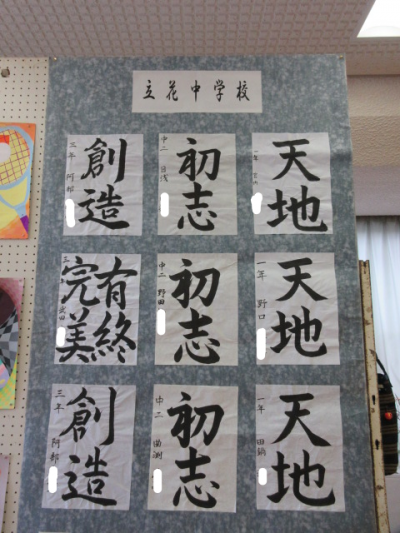 立花中学校
天地
一年
初志
中二
創造
三年 阿部
天地
一年 野口
初志
中二 野田
有終
完美
三 武田
天地
一年 田鍋
初志
中二
創造
三年 阿部